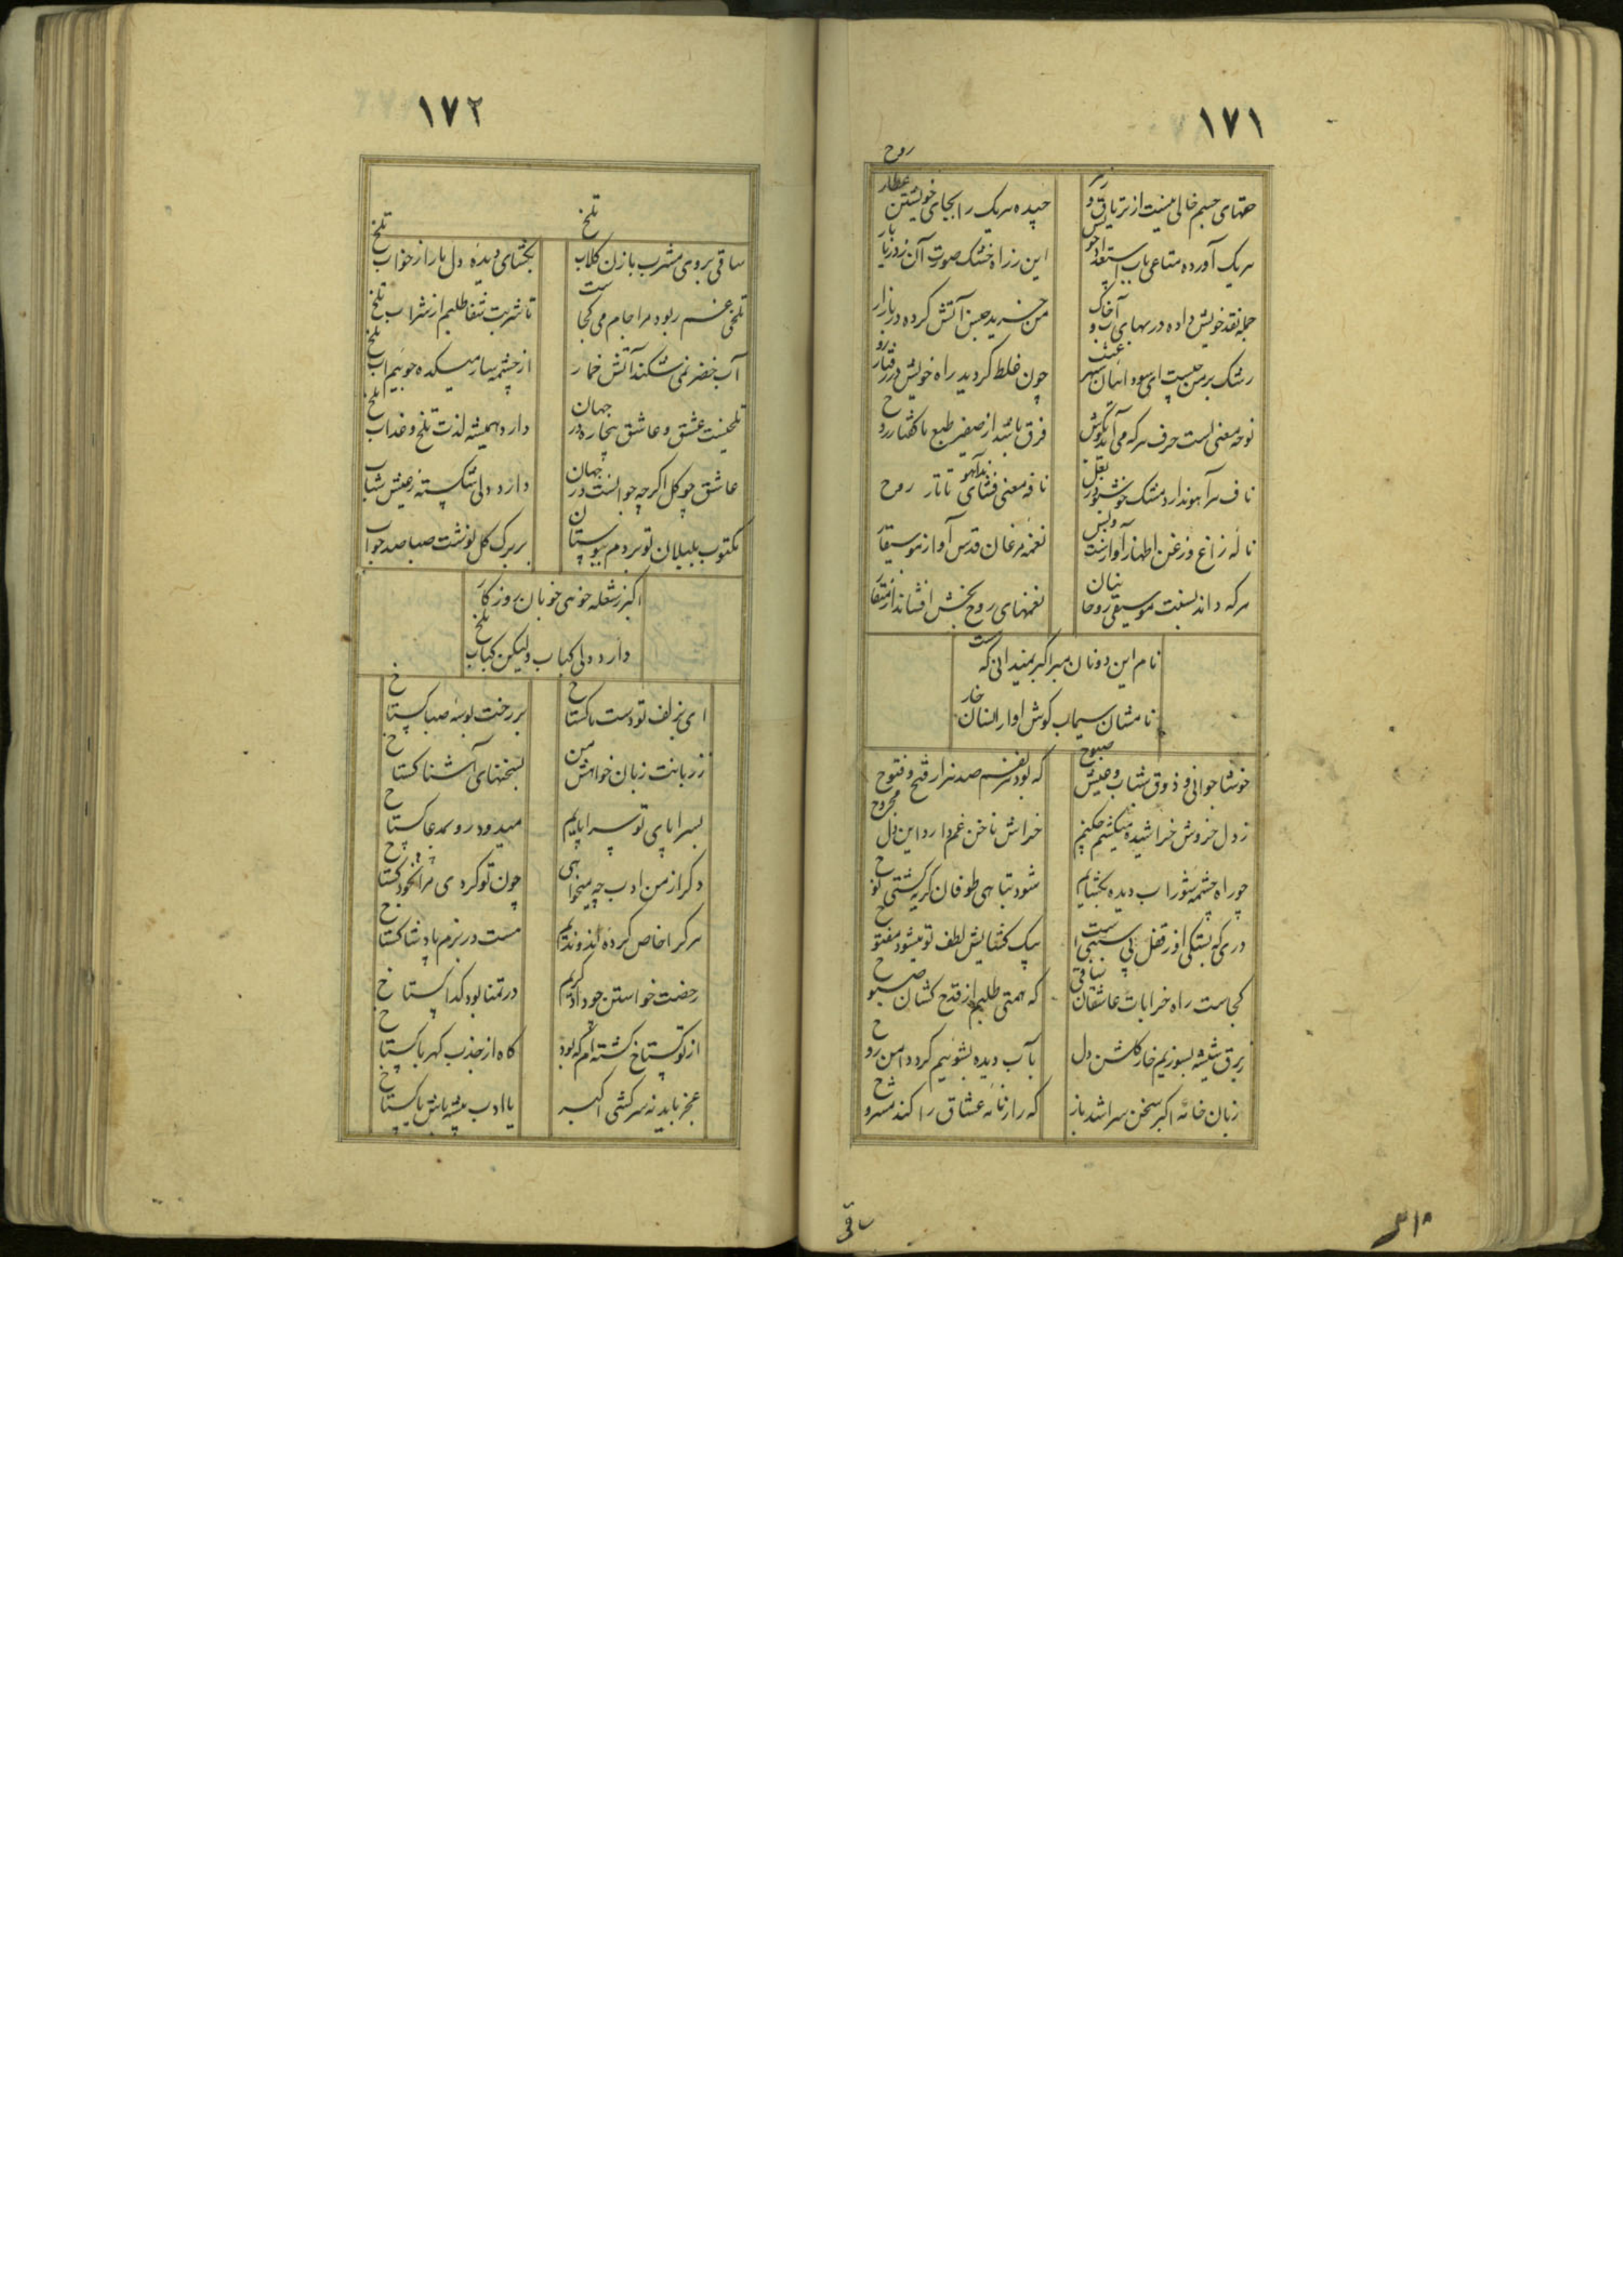 ١٧١
حقهای جسم خالی نیست از تریاق و زهر
چیده هر یک را بجای خویشتن عطار روح
هر یک آورده متاعی باب استعداد خویش
این ز راه خشک صورت آن ز دریا بار
جمله نقد خویش داده در بهای آب و خاک
من خرید جنس آتش کرده در بازار
رشک بر من چیست ای سوداییان شهر عبث
چون غلط کردید راه خویش در رفتار
نوحه معنی است حرف هر که می آید بگوش
فرق باشد از صفیر طبع با گفتار روح
ناف هر آهو ندارد مشک خوشبو در بغل
نافه معنی فشاند آهوی تاتار روح
ناله زاغ و زغن اظهار آوازست و بس
نغمه مرغان قدس آواز موسیقار
هر که داند نسبت موسیقی روحانیان
نغمهای روح بخش افشاند از منقار
نام این دونان مبر اکبر نمیدانی که
نامشان سیماب گوش او ار انسان خار
خوشا جوانی و ذوق شتاب و عیش صبوح
که بود هر نفسم صد هزار فتح و فتوح
ز دل خروش خراشیده میکشیم چکنیم
خراش ناخن غم دارد این دل مجروح
چو راه چشمه شوراب دیده بگشایم
شود تباهی طوفان گریه کشتی نوح
دری که بستگی او ز قفل بی سببی است
بیک گشایش لطف تو میشود مفتوح
کجاست راه خرابات عاشقان ساقی
که همتی طلبم از قدح کشان صبوح
ببرق شیشه بسوزیم خار گلشن دل
بآب دیده بشوییم گرد دامن روح
زبان خامه اکبر سخن سرا شد باز
که راز نامه عشاق را کند مشروح
ساقی
١٧٢
ساقی بروی مشرب ما زن گلاب تلخ
بگشای دیده دل ما را ز خواب تلخ
تلخی غم ربود مرا جام می کجاست
تا شربت شفا طلبم از شراب تلخ
آب خضر نمی شکند آتش خمار
از چشمه سار میکده جوییم آب تلخ
تلخیست عشق و عاشق بیچاره در جهان
دارد همیشه لذت تلخ و عذاب تلخ
عاشق چو گل اگر چه جوانست در جهان
دارد دلی شکسته ز عیش شباب
مکتوب بلبلان تو بردم ببوستان
بر برگ گل نوشت صبا صد جواب
اکبر ز شعله خویی خوبان روزگار
دارد دلی کباب ولیکن کباب تلخ
ای بزلف تو دست ما گستاخ
بر رخت بوسه صبا گستاخ
ز زبانت زبان خواهش من
بسخنهای آشنا گستاخ
بسراپای تو سراپایم
میدود رو بمدعا گستاخ
دگر از من ادب چه میخواهی
چون تو کردی مرا بخود گستاخ
هر کرا خاص کرده اند و ندیم
هست در بزم پادشا گستاخ
رخصت خواستن چو داد کریم
در تمنا بود گدا گستاخ
از تو گستاخ گشته ام که بود
کاه از جذب کهربا گستاخ
عجز باید نه سرکشی اکبر
با ادب پیشه باش یا گستاخ